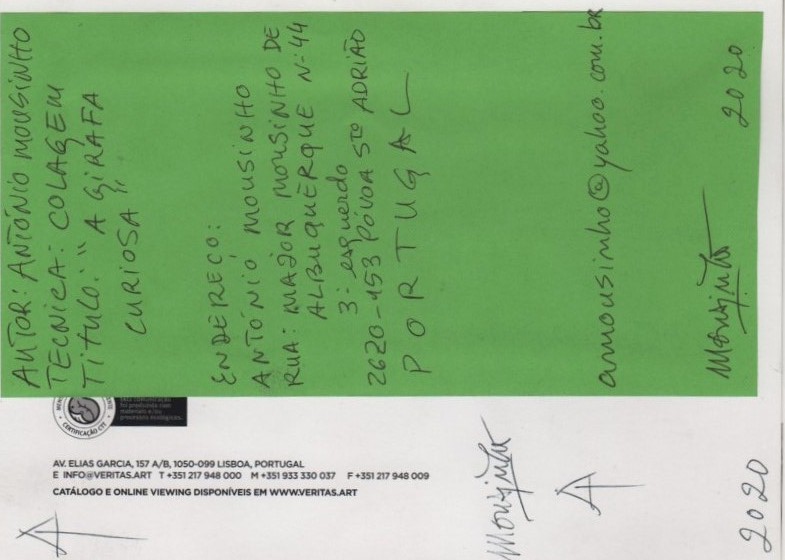 AUTOR: ANTÓNIO MOUSINHO
TECNICA: COLAGEM
TITULO: "A GIRAFA
CURIOSA"
ENDEREÇO:
ANTÓNIO MOUSINHO
RUA: MAJOR MOUSINHO DE
ALBUQUERQUE Nº 44
3º esquerdo
2620-153 PÓVOA STO ADRIÃO
PORTUGAL
amousinho@yahoo.com.br
Mousinho
2020
CERTIFICAÇÃO CTE
AV. ELIAS GARCIA, 157 A/B, 1050-099 LISBOA, PORTUGAL
E INFO@VERITAS.ART T +351 217 948 000 M +351 933 330 037 F +351 217 948 009
CATÁLOGO E ONLINE VIEWING DISPONÍVEIS EM WWW.VERITAS.ART
Mousinho
2020